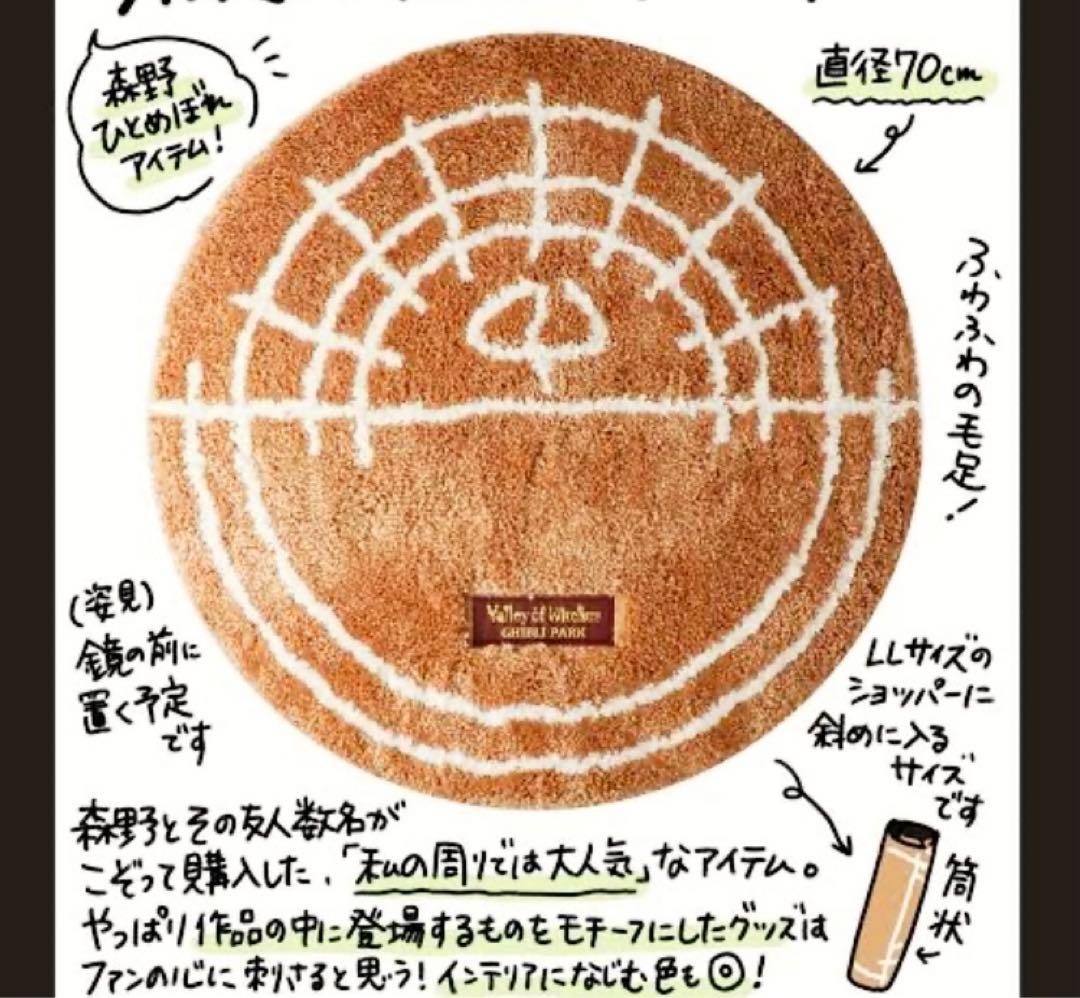 森野
ひとめぼれ
アイテム!
直径70cm
ふわふわの毛足!
Valley of Witches
GHIBLI PARK
(姿見)
鏡の前に
置く予定
です
LLサイズの
ショッパーに
斜めに入る
サイズ
です
筒状
森野とその友人数名が
こぞって購入した、「私の周りでは大人気」なアイテム。
やっぱり作品の中に登場するものをモチーフにしたグッズは
ファンの心に刺さると思う!インテリアになじむ色も◎!